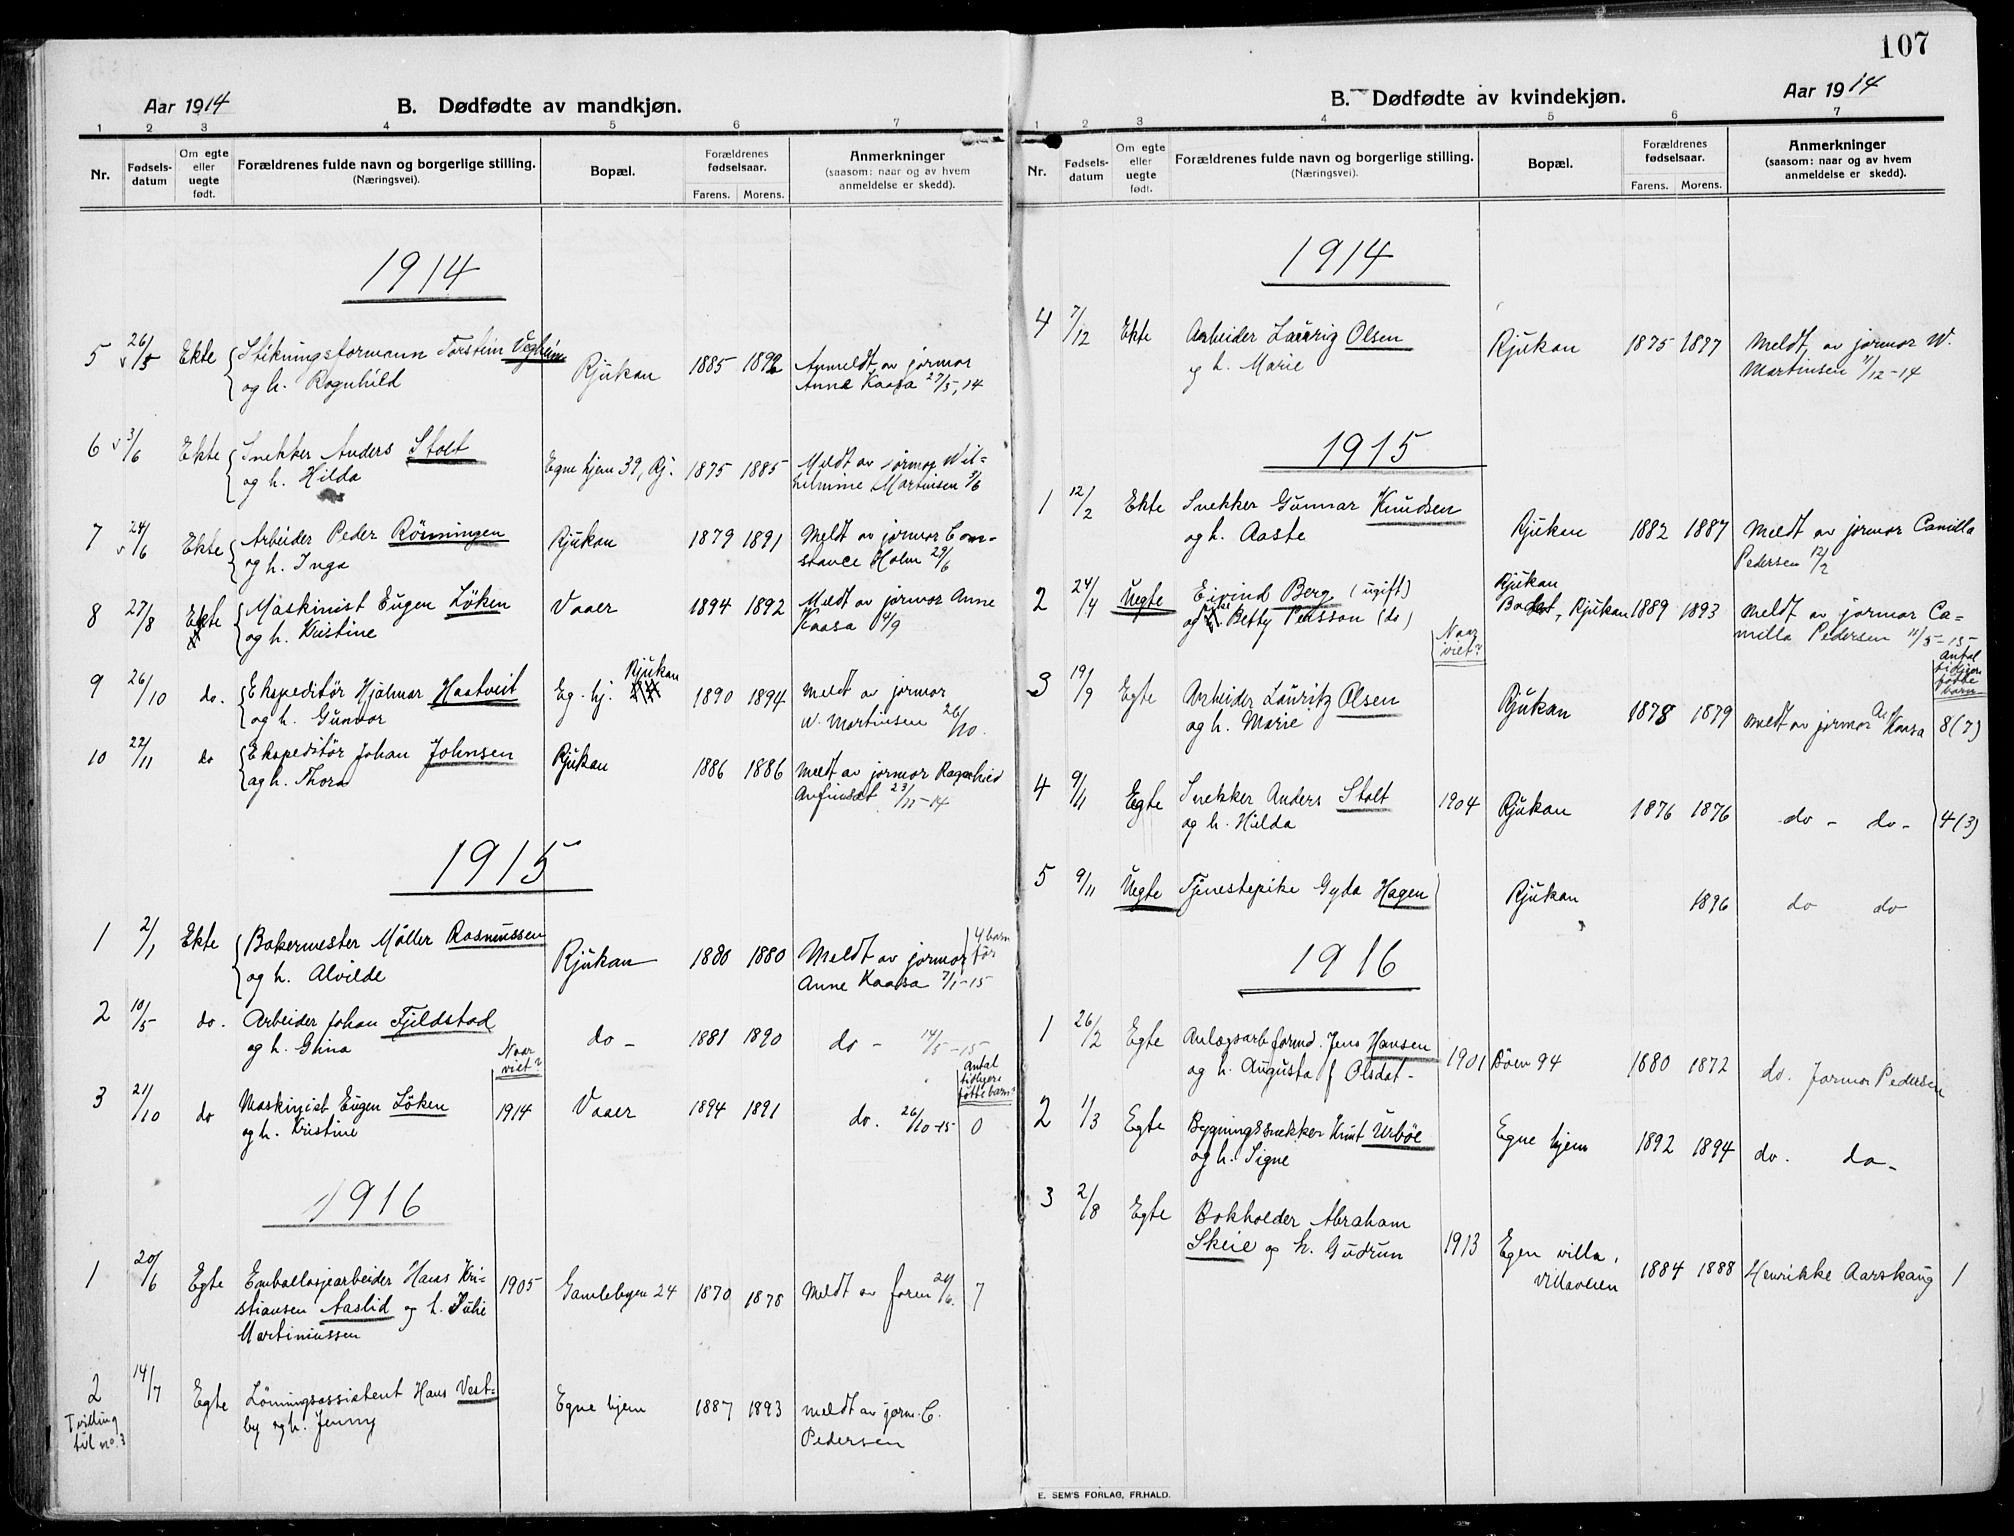 107
Aar 1914
B. Dødfødte av mandkjøn.
1 2 3 4 5 6 7
Nr.
Fødsels-
datum
Om egte
eller
uegte
født.
Forældrenes fulde navn og borgerlige stilling.
(Næringsvei).
Bopæl.
Forældrenes
fødselsaar.
Farens. Morens.
Anmerkninger
(saasom: naar og av hvem
anmeldelse er skedd).
1914
5 26/5 Ekte Stikningsformann Torstein Vegheim Rjukan 1885 1892 Anmeldt av jormor
og h. Ragnhild Anne Kaasa 27/5, 14
6 3/6 Ekte Snekker Anders Stolt Egne hjem 39, Rj. 1875 1885 Meldt av jormor Wil-
og h. Hilda helmine Martinsen 3/6
7 24/6 Ekte Arbeider Peder Rönningen Rjukan 1879 1891 Meldt av jormor Con-
og h. Inga stance Holm 29/6
8 27/8 Ekte Maskinist Eugen Löken Vaaer 1894 1892 Meldt av jormor Anne
og h. Kristine Kaasa 4/9
9 26/10 do. Ekspeditör Hjalmar Haatveit Eg. hj. Rjukan 1890 1894 Meldt av jormor
og h. Gunvor W. Martinsen 26/10.
10 22/11 do Ekspeditör Johan Johnsen Rjukan 1886 1886 Meldt av jormor Ragnhild
og h. Thora Anfinset 23/11-14
1915
1 2/1 Ekte Bakermester Möller Rasmussen Rjukan 1880 1880 Meldt av jormor 4 barn
og h. Alvilde Anne Kaasa 7/1-15 før
2 10/5 do. Arbeider Johan Fjeldstad do - 1881 1890 do - 14/5-15
og h. Gina
Naar
viet?
Antal
tidligere
fötte barn?
3 21/10 do Maskinist Eugen Löken 1914 Vaaer 1894 1891 do. 26/10-15 0
og h. Kristine
1916
1 20/6 Egte Emballasjearbeider Hans Kri- 1905 Gamlebyen 24 1870 1878 Meldt av faren 21/6. 7
stiansen Aaslid og h. Julie
Martiniussen
2 14/7 Egte Lönningsassistent Hans Vest- Egne hjem 1887 1893 meldt av jorm. C.
Tvilling by og h. Jenny Pedersen
til no. 3
B. Dødfødte av kvindekjøn.
Aar 1914
1 2 3 4 5 6 7
Nr.
Fødsels-
datum
Om egte
eller
uegte
født.
Forældrenes fulde navn og borgerlige stilling.
(Næringsvei).
Bopæl.
Forældrenes
fødselsaar.
Farens. Morens.
Anmerkninger
(saasom: naar og av hvem
anmeldelse er skedd).
1914
4 7/12 Ekte Arbeider Lauritz Olsen Rjukan 1875 1877 Meldt av jormor W.
og h. Marie Martinsen 11/12-14
1915
1 12/2 Ekte Snekker Gunnar Knudsen Rjukan 1882 1887 Meldt av jormor Camilla
og h. Aaste Pedersen 12/2
2 24/4 Uegte Eivind Berg (ugift) Rjukan
og pike Betty Persson (do) Rjukan 1889 1893 Meldt av jormor Ca-
milla Pedersen 11/5-15
Naar
viet?
Antal
tidligere
fötte
barn
3 19/9 Egte Arbeider Lauritz Olsen Rjukan 1878 1879 Meldt av jormor A. Kaasa 8(7)
og h. Marie
4 9/11 Egte Snekker Anders Stolt 1904 Rjukan 1876 1876 do - do - 4(3)
og h. Hilda
5 9/11 Uegte Tjenestepike Gyda Hagen Rjukan 1896 do do
1916
1 26/2 Egte Anlægsarb.formd. Jens Hansen 1901 Böen 94 1880 1872 do. Jormor Pedersen
og h. Augusta f. Olsdat-
2 1/3 Egte Bygningssnekker Knut Urböe Egne hjem 1892 1894 do. do-
og h. Signe
3 2/8 Egte Bokholder Abraham 1913 Egen villa, 1884 1888 Henrikke Aarskaug 1
Skeie og h. Gudrun Villaveien
E. SEM'S FORLAG, FR.HALD.